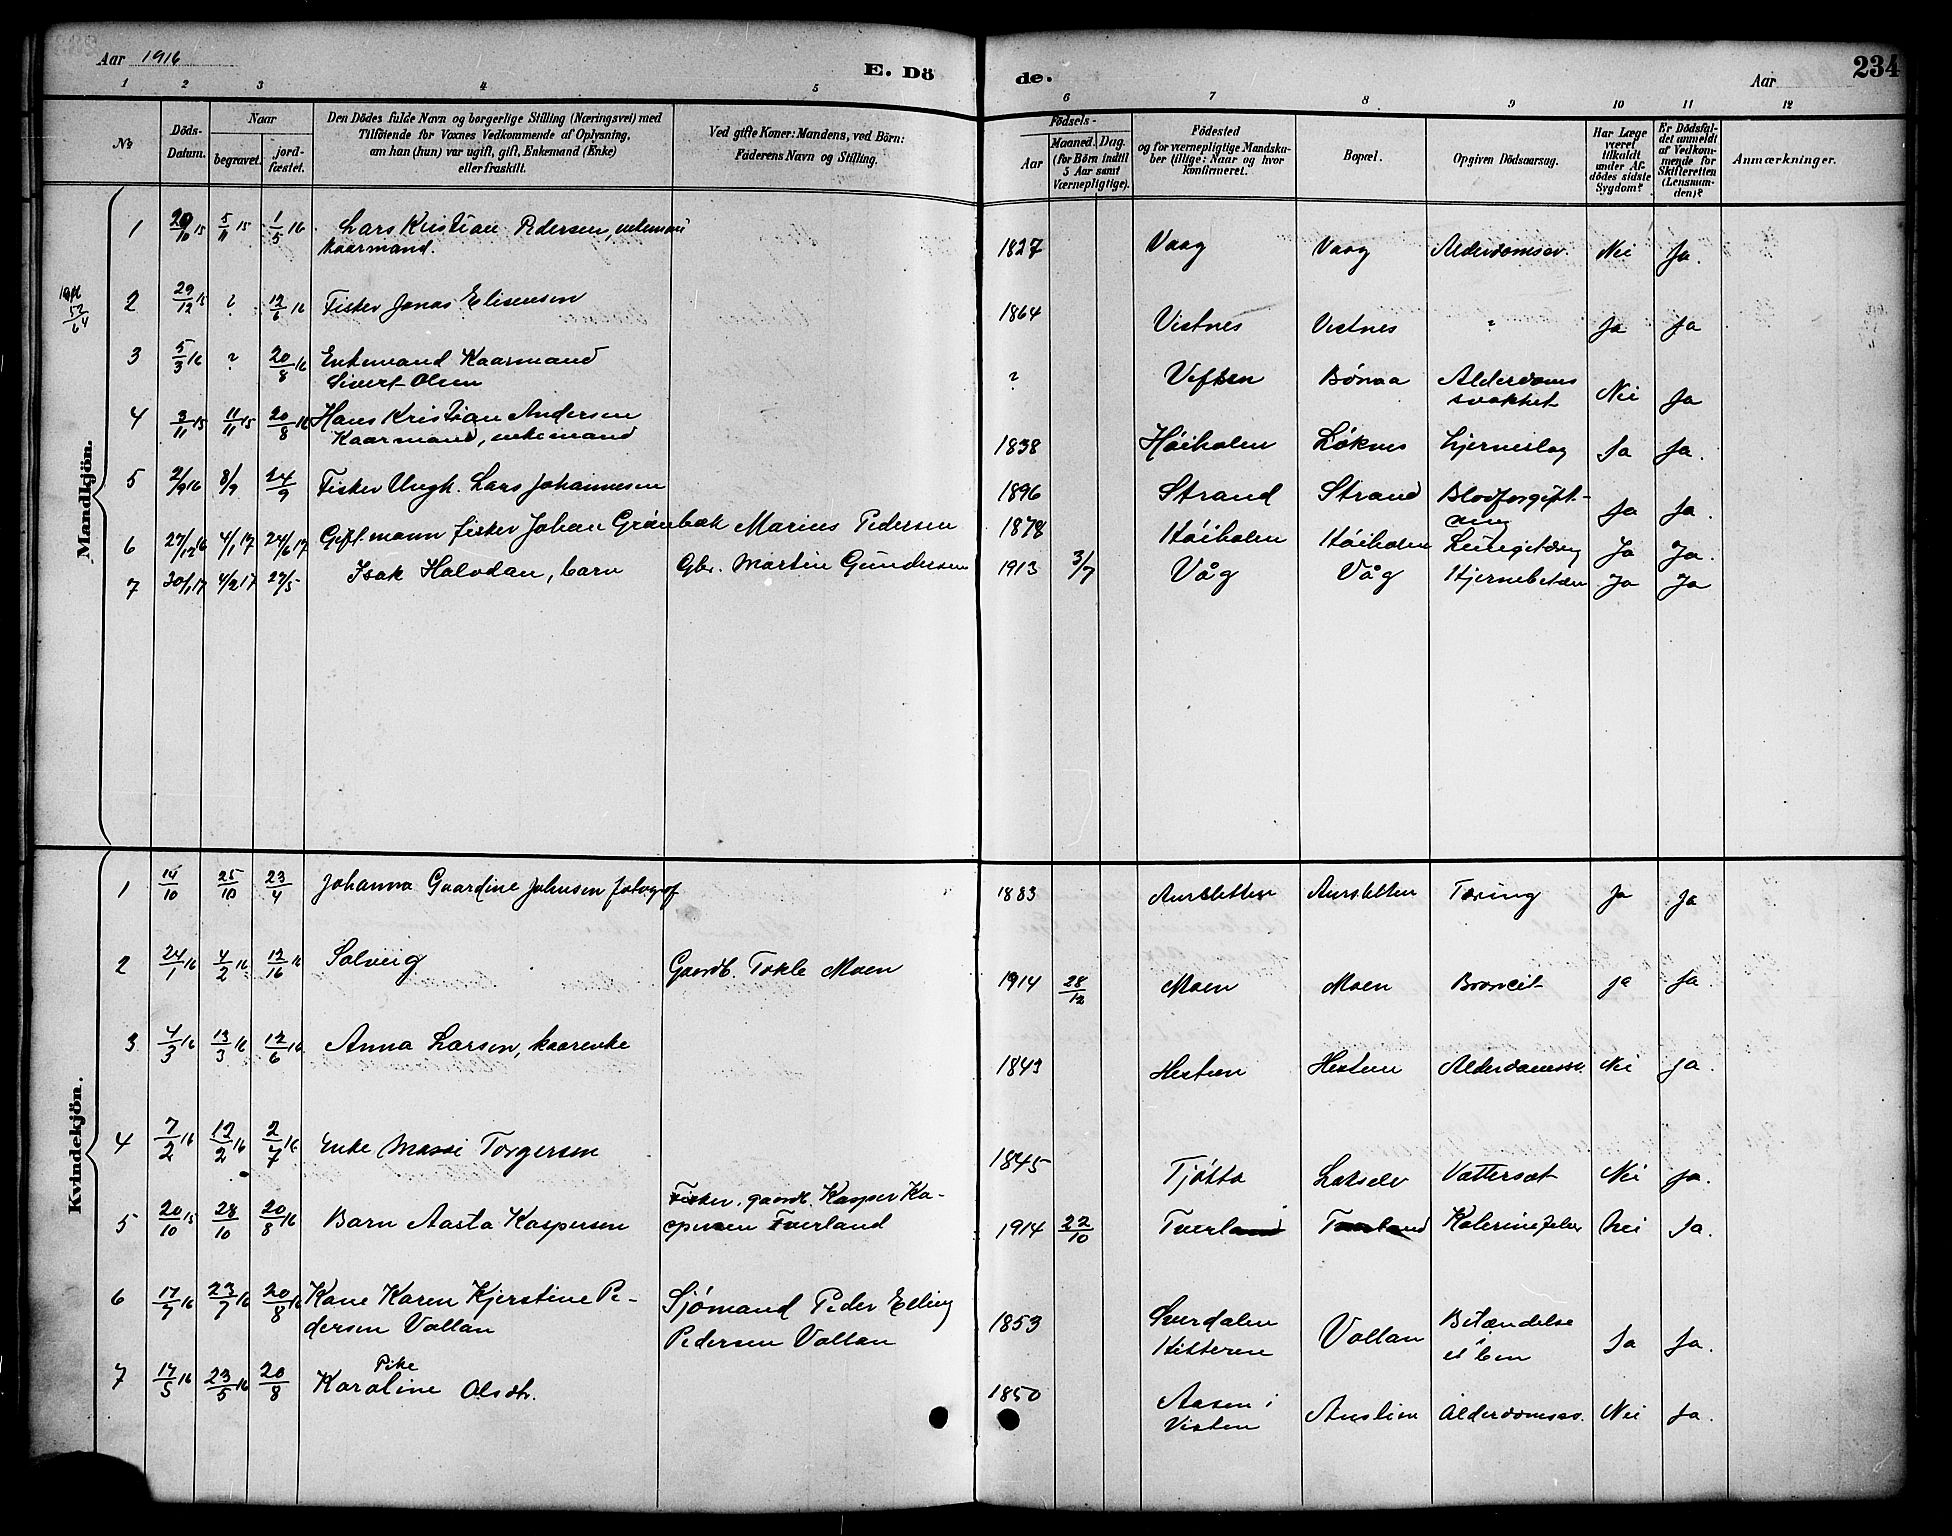 Aar 1916
E. Dö
de.
Aar
234
1 2 3 4 5 6 7 8 9 10 11 12
No
Döds-Datum.
Naar
begravet.
jord-fæstet.
Den Dödes fulde Navn og borgerlige Stilling (Næringsvei) med
Tilföiende for Voxnes Vedkommende af Oplysning,
om han (hun) var ugift, gift, Enkemand (Enke)
eller fraskilt.
Ved gifte Koner: Mandens, ved Börn:
Faderens Navn og Stilling.
Födsels-
Aar
Maaned. Dag.
(for Börn indtil
5 Aar samt
Værnepligtige).
Födested
og for værnepligtige Mandska-
ber tillige: Naar og hvor
konfirmeret.
Bopæl.
Opgiven Dödsaarsag.
Har Læge
været
tilkaldt
under Af-
dödes sidste
Sygdom?
Er Dödsfal-
det anmeldt
af Vedkom-
mende for
Skifteretten
(Lensman-
den)?
Anmærkninger.
Mandkjön.
1 20/10 15 5/11 15 1/5 16 Lars Kristian Pedersen,
kaarmand. 1827 Vaag Vaag Alderdomssv. Nei Ja.
2 29/12 15 ? 12/6 16 Fisker Jonas Elisensen 1864 Vistnes Vistnes ? Ja Ja
3 5/3 16 ? 20/8 16 Enkemand Kaarmand
Sivert Olsen ? Vefsen Bønaa Alderdoms
svakhet Nei Ja
4 3/11 15 11/11 15 20/8 16 Hans Kristian Andersen
Kaarmand, enkemand 1838 Høiholm Løknes hjerneslag Ja Ja.
5 2/9 16 8/9 24/9 Fisker Ungk. Lars Johannesen 1896 Strand Strand Blodforgift-
ning Ja Ja.
6 27/12 16 4/1 17 24/6 17 Gift mann fisker Johan Grønbæk Marius Pedersen 1878 Høiholm Høiholm Ja Ja.
7 30/1 17 4/2 17 27/5 Isak Halvdan, barn Gbr. Martin Gundersen 1913 3/7 Våg Våg Hjernebetæn Ja Ja
Kvindekjön.
1 14/10 25/10 23/4 Johanna Gaardine Johnsen fotograf 1883 Aursletten Aursletten Tæring Ja Ja
2 24/1 16 4/2 16 12/16 16 Solveig Gaardb. Tokle Moen 1914 28/12 Moen Moen Broncit ja Ja.
3 4/3 16 13/3 16 12/6 16 Anna Larsen, kaarenke 1843 Hestun Hestun Alderdomssv. Nei Ja.
4 7/2 16 12/2 16 2/7 16 Enke Massi Torgersen 1845 Tjøtta Lakselv Vattersot Nei Ja.
5 20/10 15 28/10 20/8 16 Barn Aasta Kaspersen Fisker, gaardb. Kasper Ka-
spersen Tverland 1914 22/10 Tverland Tverland Nei Ja.
6 17/7 16 23/7 16 20/8 16 Kone Karen Kjerstine Pe-
dersen Vollan Sjømand Peder Elling
Pedersen Vollan 1853 Vollan Betændelse
i ben Ja Ja.
7 17/5 16 23/5 16 20/8 Pike
Karoline Olsdtr. 1850 Aasen i
Visten Auslien Alderdomssv. Nei Ja.